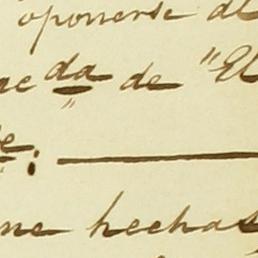 oponerse al
da de "El
e;
ne hechas